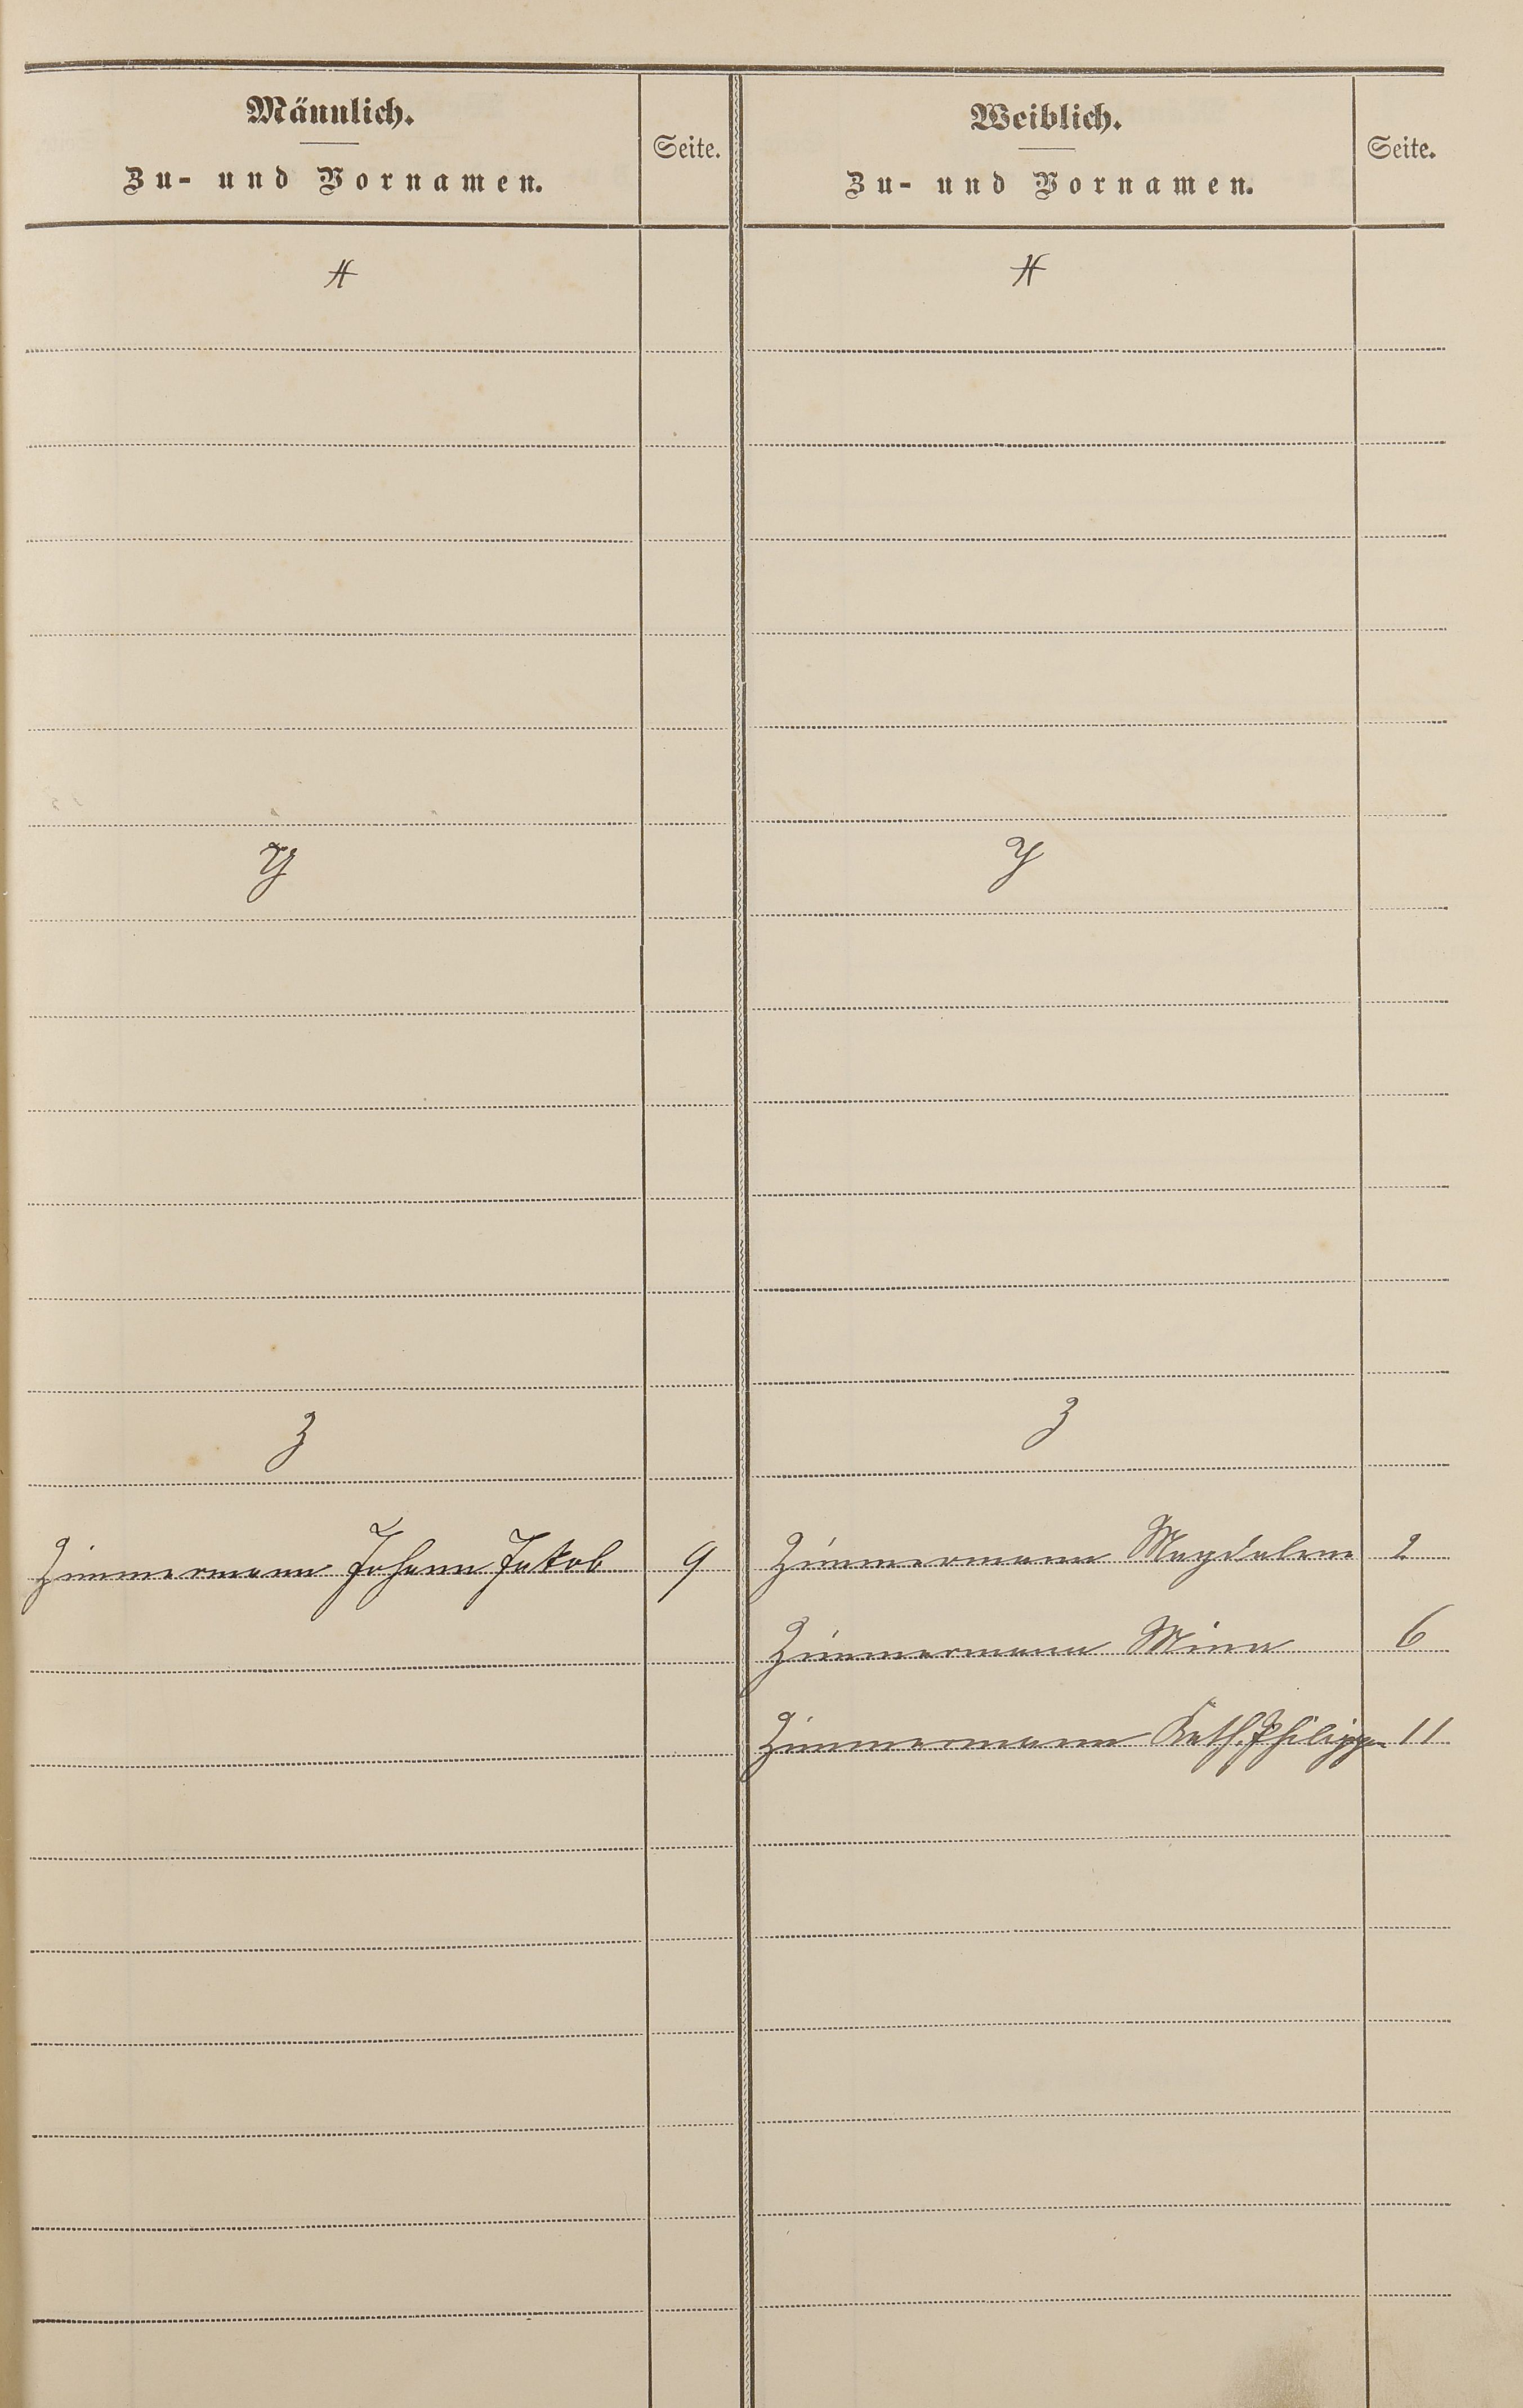 Männlich. Seite. Weiblich. Seite.
Zu- und Vornamen. Zu- und Vornamen.
X X
Y Y
Z Z
Zimmermann Johann Jakob 9 Zimmermann Magdalena 2
Zimmermann Mina 6
Zimmermann Kath. Philippn 11